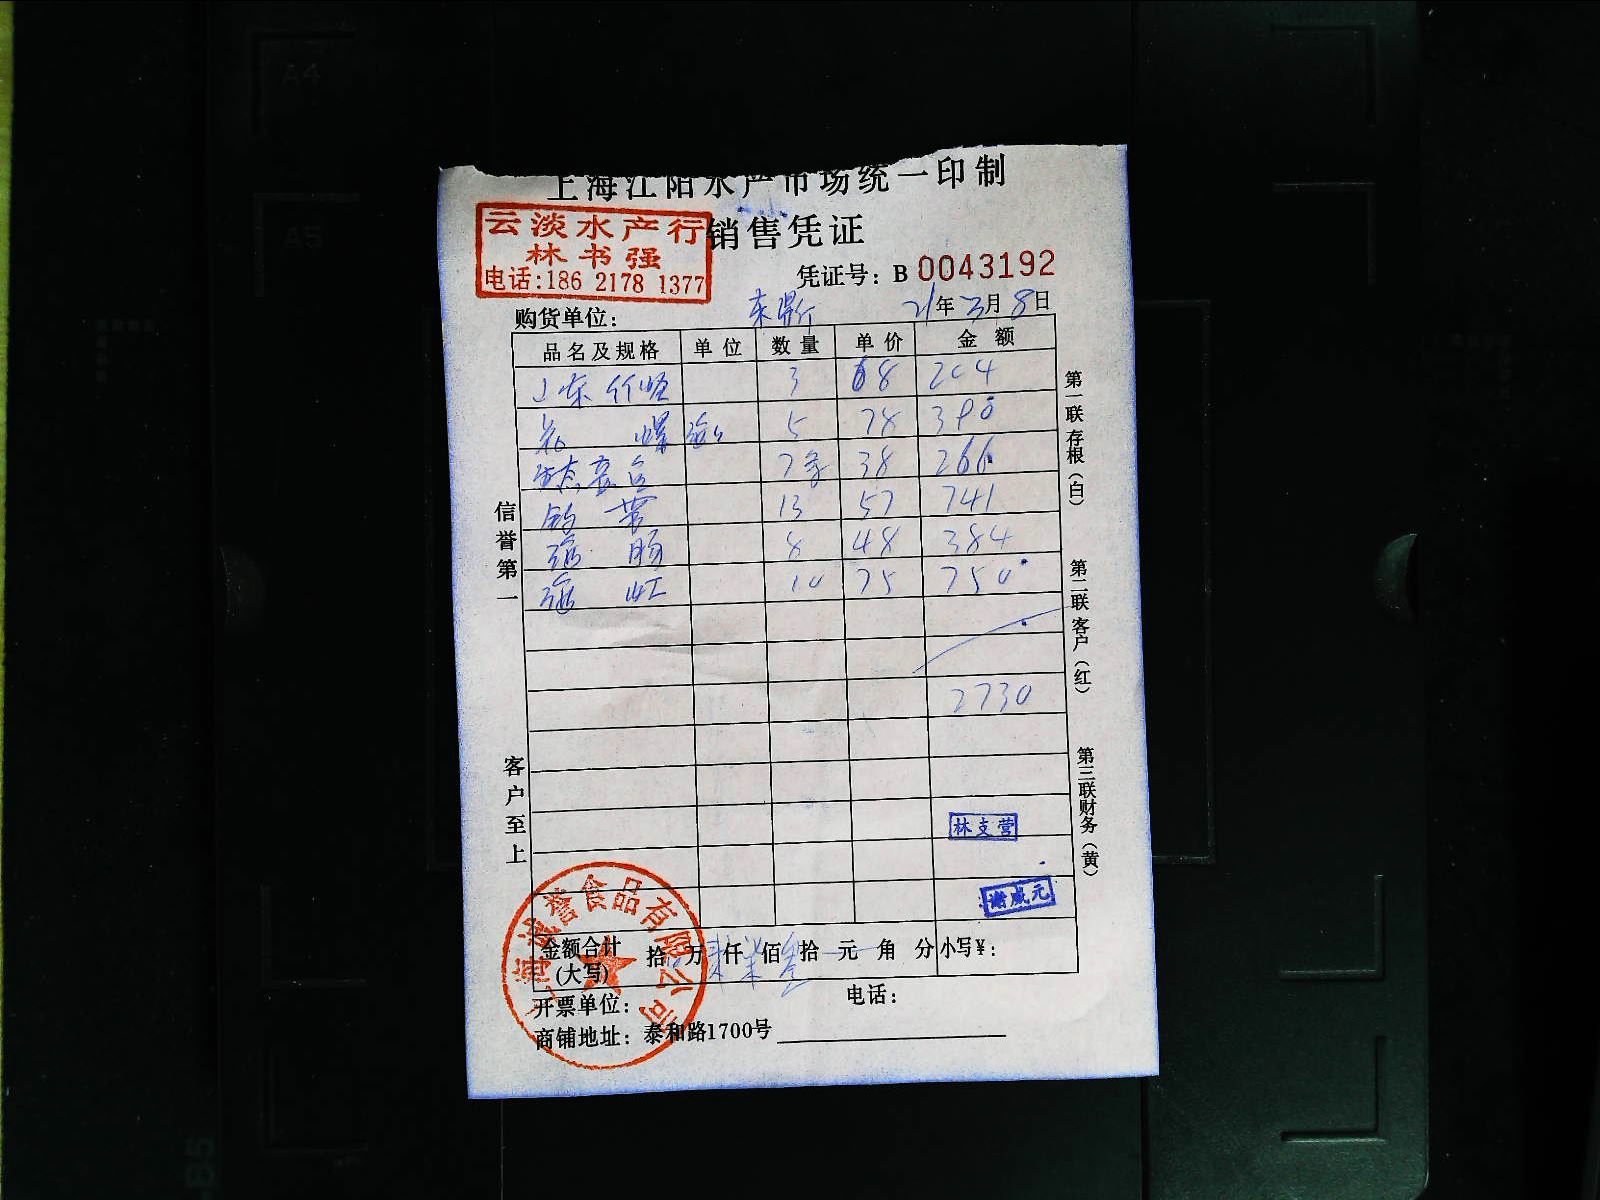 上海江阳水产市场统一印制
云淡水产行
销售凭证
林书强
电话:186 2178 1377
凭证号: B 0043192
购货单位: 21年3月8日
品名及规格 单位 数量 单价 金额
山东竹蛏 3 68 204
花螺 5 78 390
7 38 266
13 57 741
8 48 384
10 75 750
2730
信誉第一
客户至上
第一联存根(白)
第二联客户(红)
第三联财务(黄)
林支营
谢威元
上海诚誉食品有限公司
金额合计(大写) 拾 万 仟 佰 拾 元 角 分 小写¥:
开票单位: 电话:
商铺地址: 泰和路1700号
A4
A5
B5